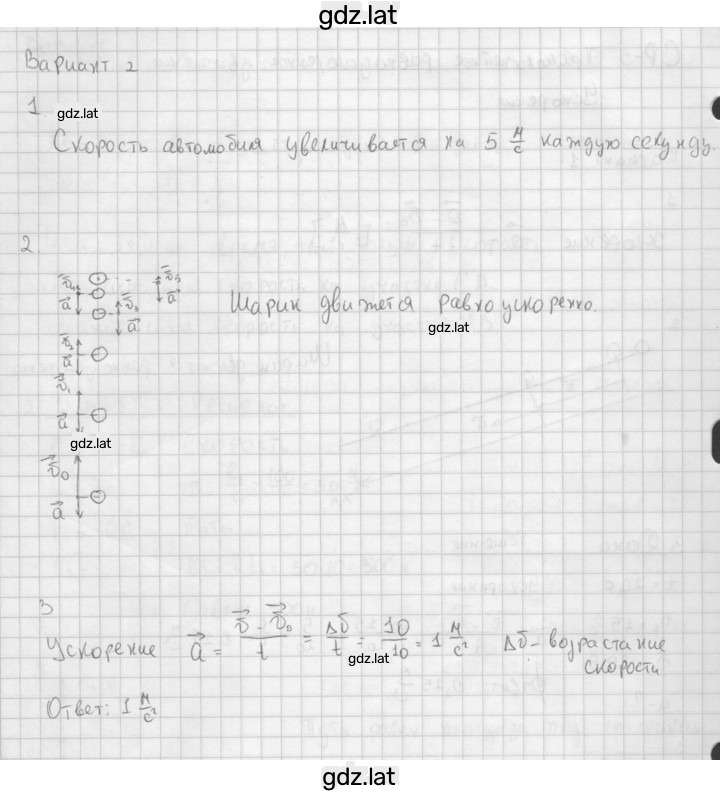 gdz.lat
Вариант 2
1
gdz.lat
Скорость автомобиля увеличивается на 5 м/с каждую секунду.
2.
Шарик движется равноускоренно.
gdz.lat
v⃗₁
a⃗
gdz.lat
v⃗₀
a⃗
3
Ускорение a⃗ = (v⃗ - v⃗₀)/t = Δv⃗/t = 10/10 = 1 м/с² Δv⃗ - возрастание
скорости
gdz.lat
Ответ: 1 м/с²
gdz.lat